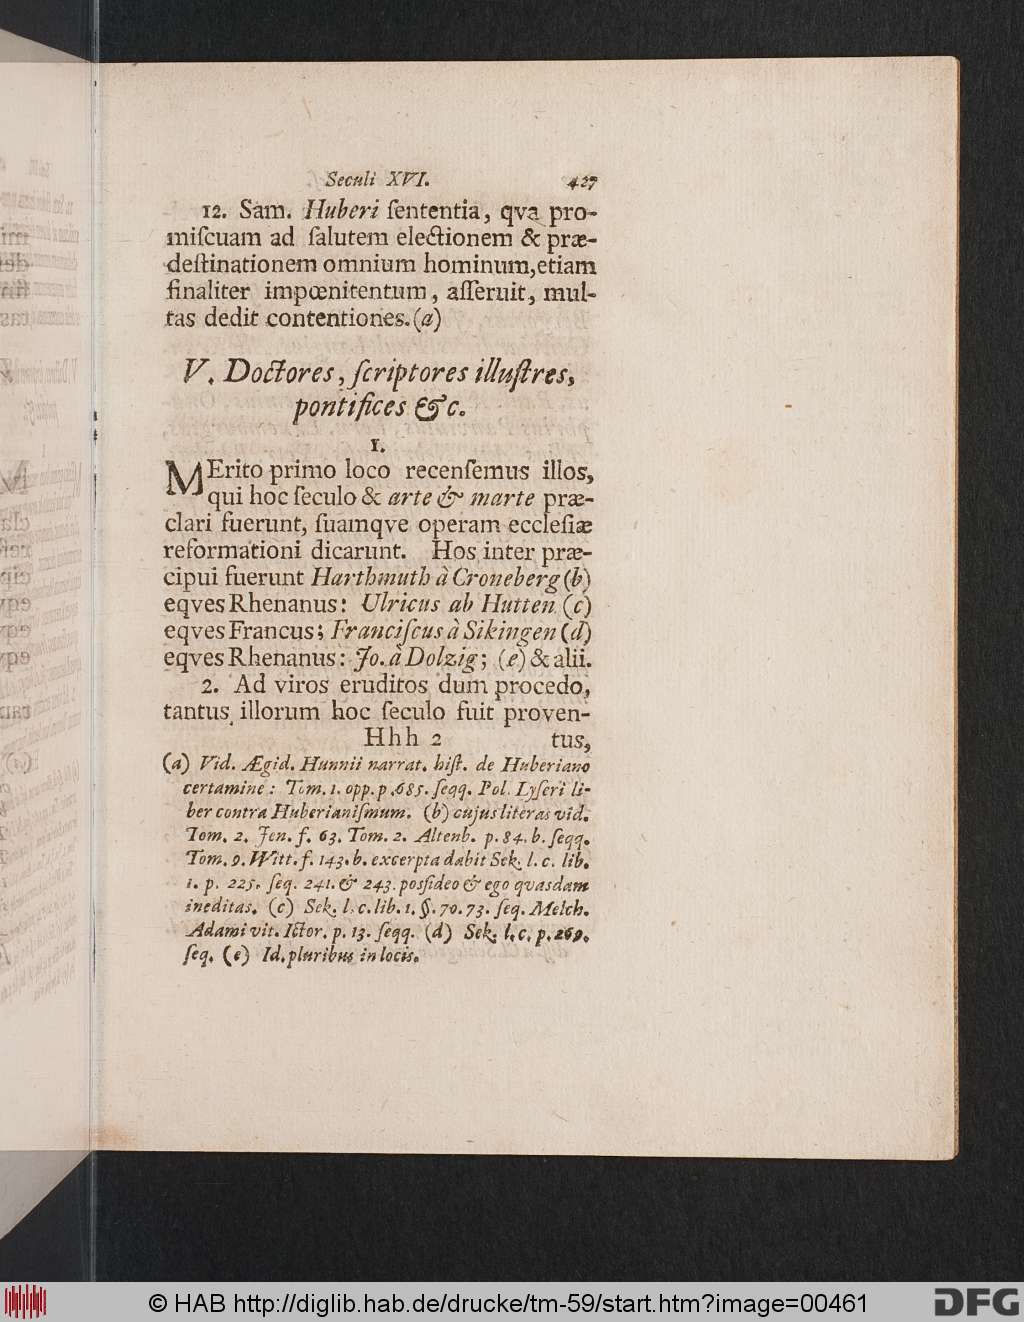 Seculi XVI. 427
12. Sam. Huberi ſententia, qva pro-
miſcuam ad ſalutem electionem & præ-
deſtinationem omnium hominum, etiam
finaliter impœnitentum, aſſeruit, mul-
tas dedit contentiones. (a)
V. Doctores, ſcriptores illuſtres,
pontifices &c.
I.
MErito primo loco recenſemus illos,
qui hoc ſeculo & arte & marte præ-
clari fuerunt, ſuamqve operam eccleſiæ
reformationi dicarunt. Hos inter præ-
cipui fuerunt Harthmuth à Croneberg (b)
eqves Rhenanus: Ulricus ab Hutten (c)
eqves Francus; Franciſcus à Sikingen (d)
eqves Rhenanus: Jo. à Dolzig; (e) & alii.
2. Ad viros eruditos dum procedo,
tantus illorum hoc ſeculo fuit proven-
Hhh 2 tus,
(a) Vid. Ægid. Hunnii narrat. hiſt. de Huberiano
certamine: Tom. 1. opp. p. 685. ſeqq. Pol. Lyſeri li-
ber contra Huberianiſmum. (b) cujus literas vid.
Tom. 2. Jen. f. 63. Tom. 2. Altenb. p. 84. b. ſeqq.
Tom. 9. Witt. f. 143. b. excerpta dabit Sek. l. c. lib.
1. p. 225. ſeq. 241. & 243. poſſideo & ego qvasdam
ineditas. (c) Sek. l. c. lib. 1. §. 70. 73. ſeq. Melch.
Adami vit. Ictor. p. 13. ſeqq. (d) Sek. l. c. p. 269.
ſeq. (e) Id. pluribus in locis.
© HAB http://diglib.hab.de/drucke/tm-59/start.htm?image=00461 DFG